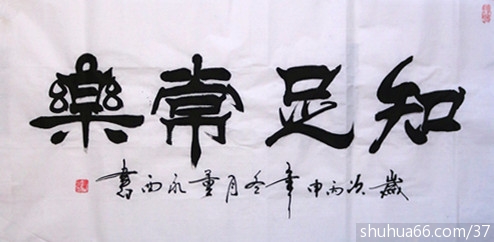 知足常樂
歲次丙申年冬月董永西書
shuhua66.com/37